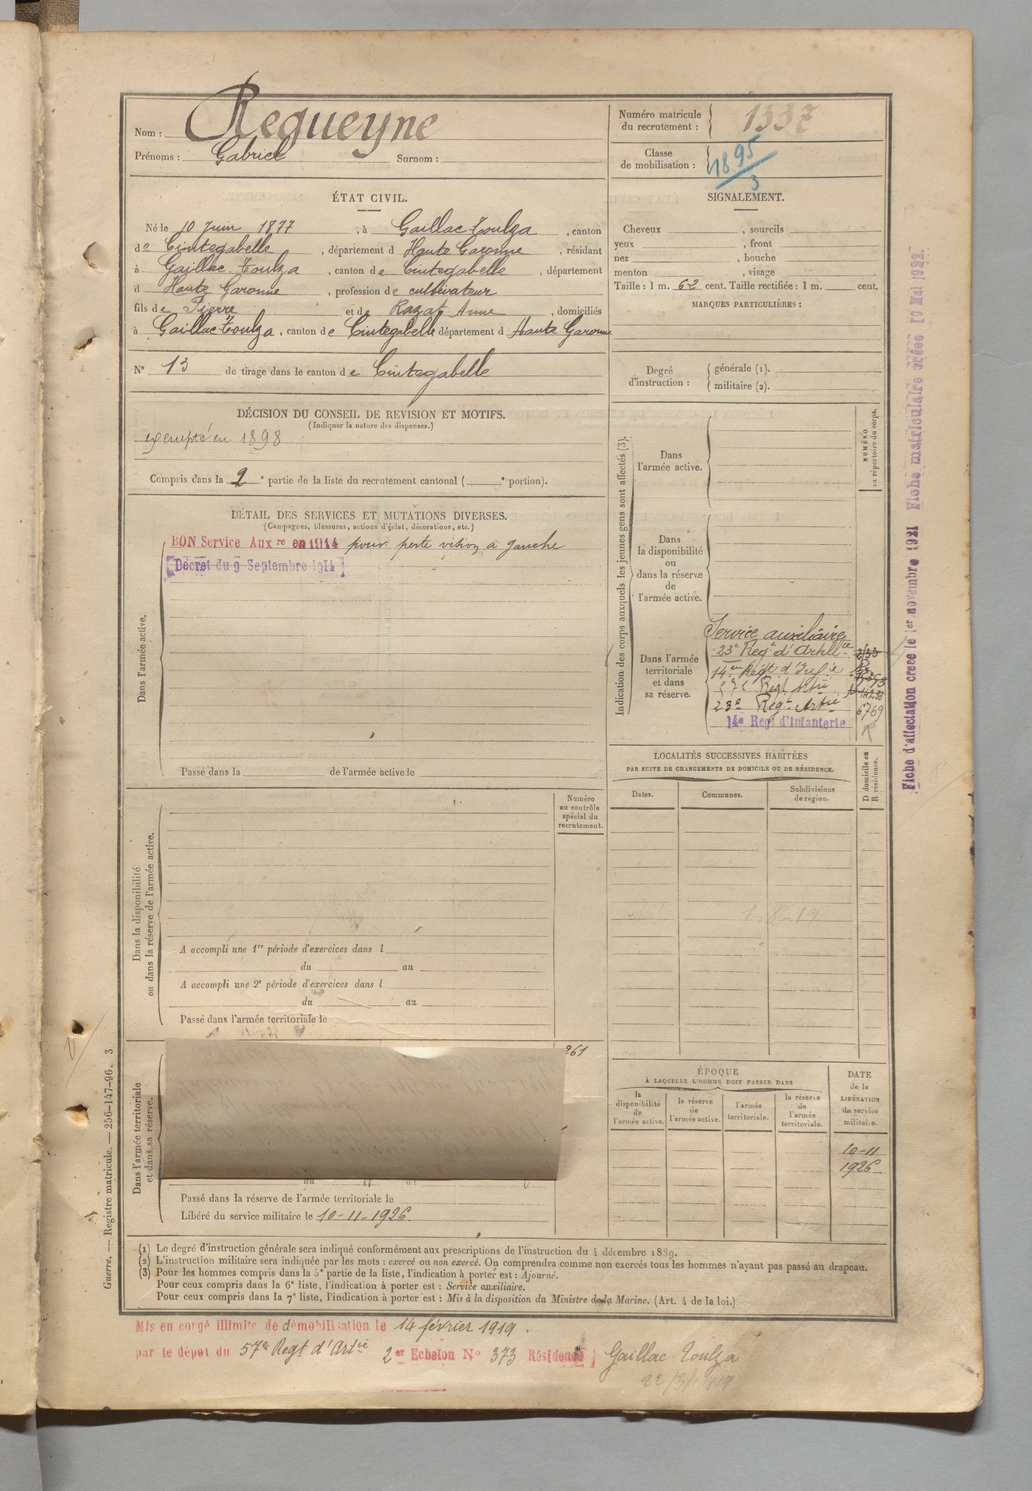 Nom : Requeyne
Prénoms : Gabriel Surnom :
Numéro matricule du recrutement : 1337
Classe de mobilisation : 1895/3
ÉTAT CIVIL.
Né le 10 Juin 1877, à Gaillac-Toulza, canton
de Cintegabelle, département d Haute Garonne, résidant
à Gaillac-Toulza, canton de Cintegabelle, département
d Haute Garonne, profession de cultivateur
fils de Pierre et de Razat Anne, domiciliés
à Gaillac-Toulza, canton de Cintegabelle département d Haute Garonne
N° 13 de tirage dans le canton de Cintegabelle
SIGNALEMENT.
Cheveux , sourcils
yeux , front
nez , bouche
menton , visage
Taille : 1 m. 62 cent. Taille rectifiée : 1 m. cent.
MARQUES PARTICULIÈRES :
Degré d'instruction : générale (1).
militaire (2).
DÉCISION DU CONSEIL DE REVISION ET MOTIFS.
(Indiquer la nature des dispenses.)
exempté en 1898
Compris dans la 2e partie de la liste du recrutement cantonal ( e portion).
DÉTAIL DES SERVICES ET MUTATIONS DIVERSES.
(Campagnes, blessures, actions d'éclat, décorations, etc.)
BON Service Auxre en 1914 pour perte vision à gauche
Décret du 9 Septembre 1914
Dans l'armée active.
Passé dans la de l'armée active le
Indication des corps auxquels les jeunes gens sont affectés (3).
NUMÉRO au répertoire du corps.
Dans l'armée active.
Dans la disponibilité ou dans la réserve de l'armée active.
Dans l'armée territoriale et dans sa réserve.
Service auxiliaire
23e Regt d'Artllie
14e Regt d'Infie
57e Regt Artie
23e Regt Artie 6769
14e Regt d'Infanterie
LOCALITÉS SUCCESSIVES HABITÉES
PAR SUITE DE CHANGEMENTS DE DOMICILE OU DE RÉSIDENCE.
Dates. Communes. Subdivisions de région. D domicile ou R résidence.
Numéro au contrôle spécial du recrutement.
Dans la disponibilité ou dans la réserve de l'armée active.
A accompli une 1re période d'exercices dans l
du au
A accompli une 2e période d'exercices dans l
du au
Passé dans l'armée territoriale le
261
Dans l'armée territoriale et dans sa réserve.
Passé dans la réserve de l'armée territoriale le
Libéré du service militaire le 10-11-1926.
ÉPOQUE
À LAQUELLE L'HOMME DOIT PASSER DANS
la disponibilité de l'armée active. la réserve de l'armée active. l'armée territoriale. la réserve de l'armée territoriale.
DATE de la LIBÉRATION du service militaire.
10-11
1926
(1) Le degré d'instruction générale sera indiqué conformément aux prescriptions de l'instruction du 4 décembre 1889.
(2) L'instruction militaire sera indiquée par les mots : exercé ou non exercé. On comprendra comme non exercés tous les hommes n'ayant pas passé au drapeau.
(3) Pour les hommes compris dans la 5e partie de la liste, l'indication à porter est : Ajourné.
Pour ceux compris dans la 6e liste, l'indication à porter est : Service auxiliaire.
Pour ceux compris dans la 7e liste, l'indication à porter est : Mis à la disposition du Ministre de la Marine. (Art. 4 de la loi.)
Mis en congé illimité de démobilisation le 14 février 1919.
par le dépot du 57e Regt d'Artie 2er Echelon N° 373 Résidence Gaillac-Toulza
Guerre. — Registre matricule. — 256-147-96. 3
Fiche d'affectation créée le 1er novembre 1921 Fiche matriculaire créée 10 Mai 1922.